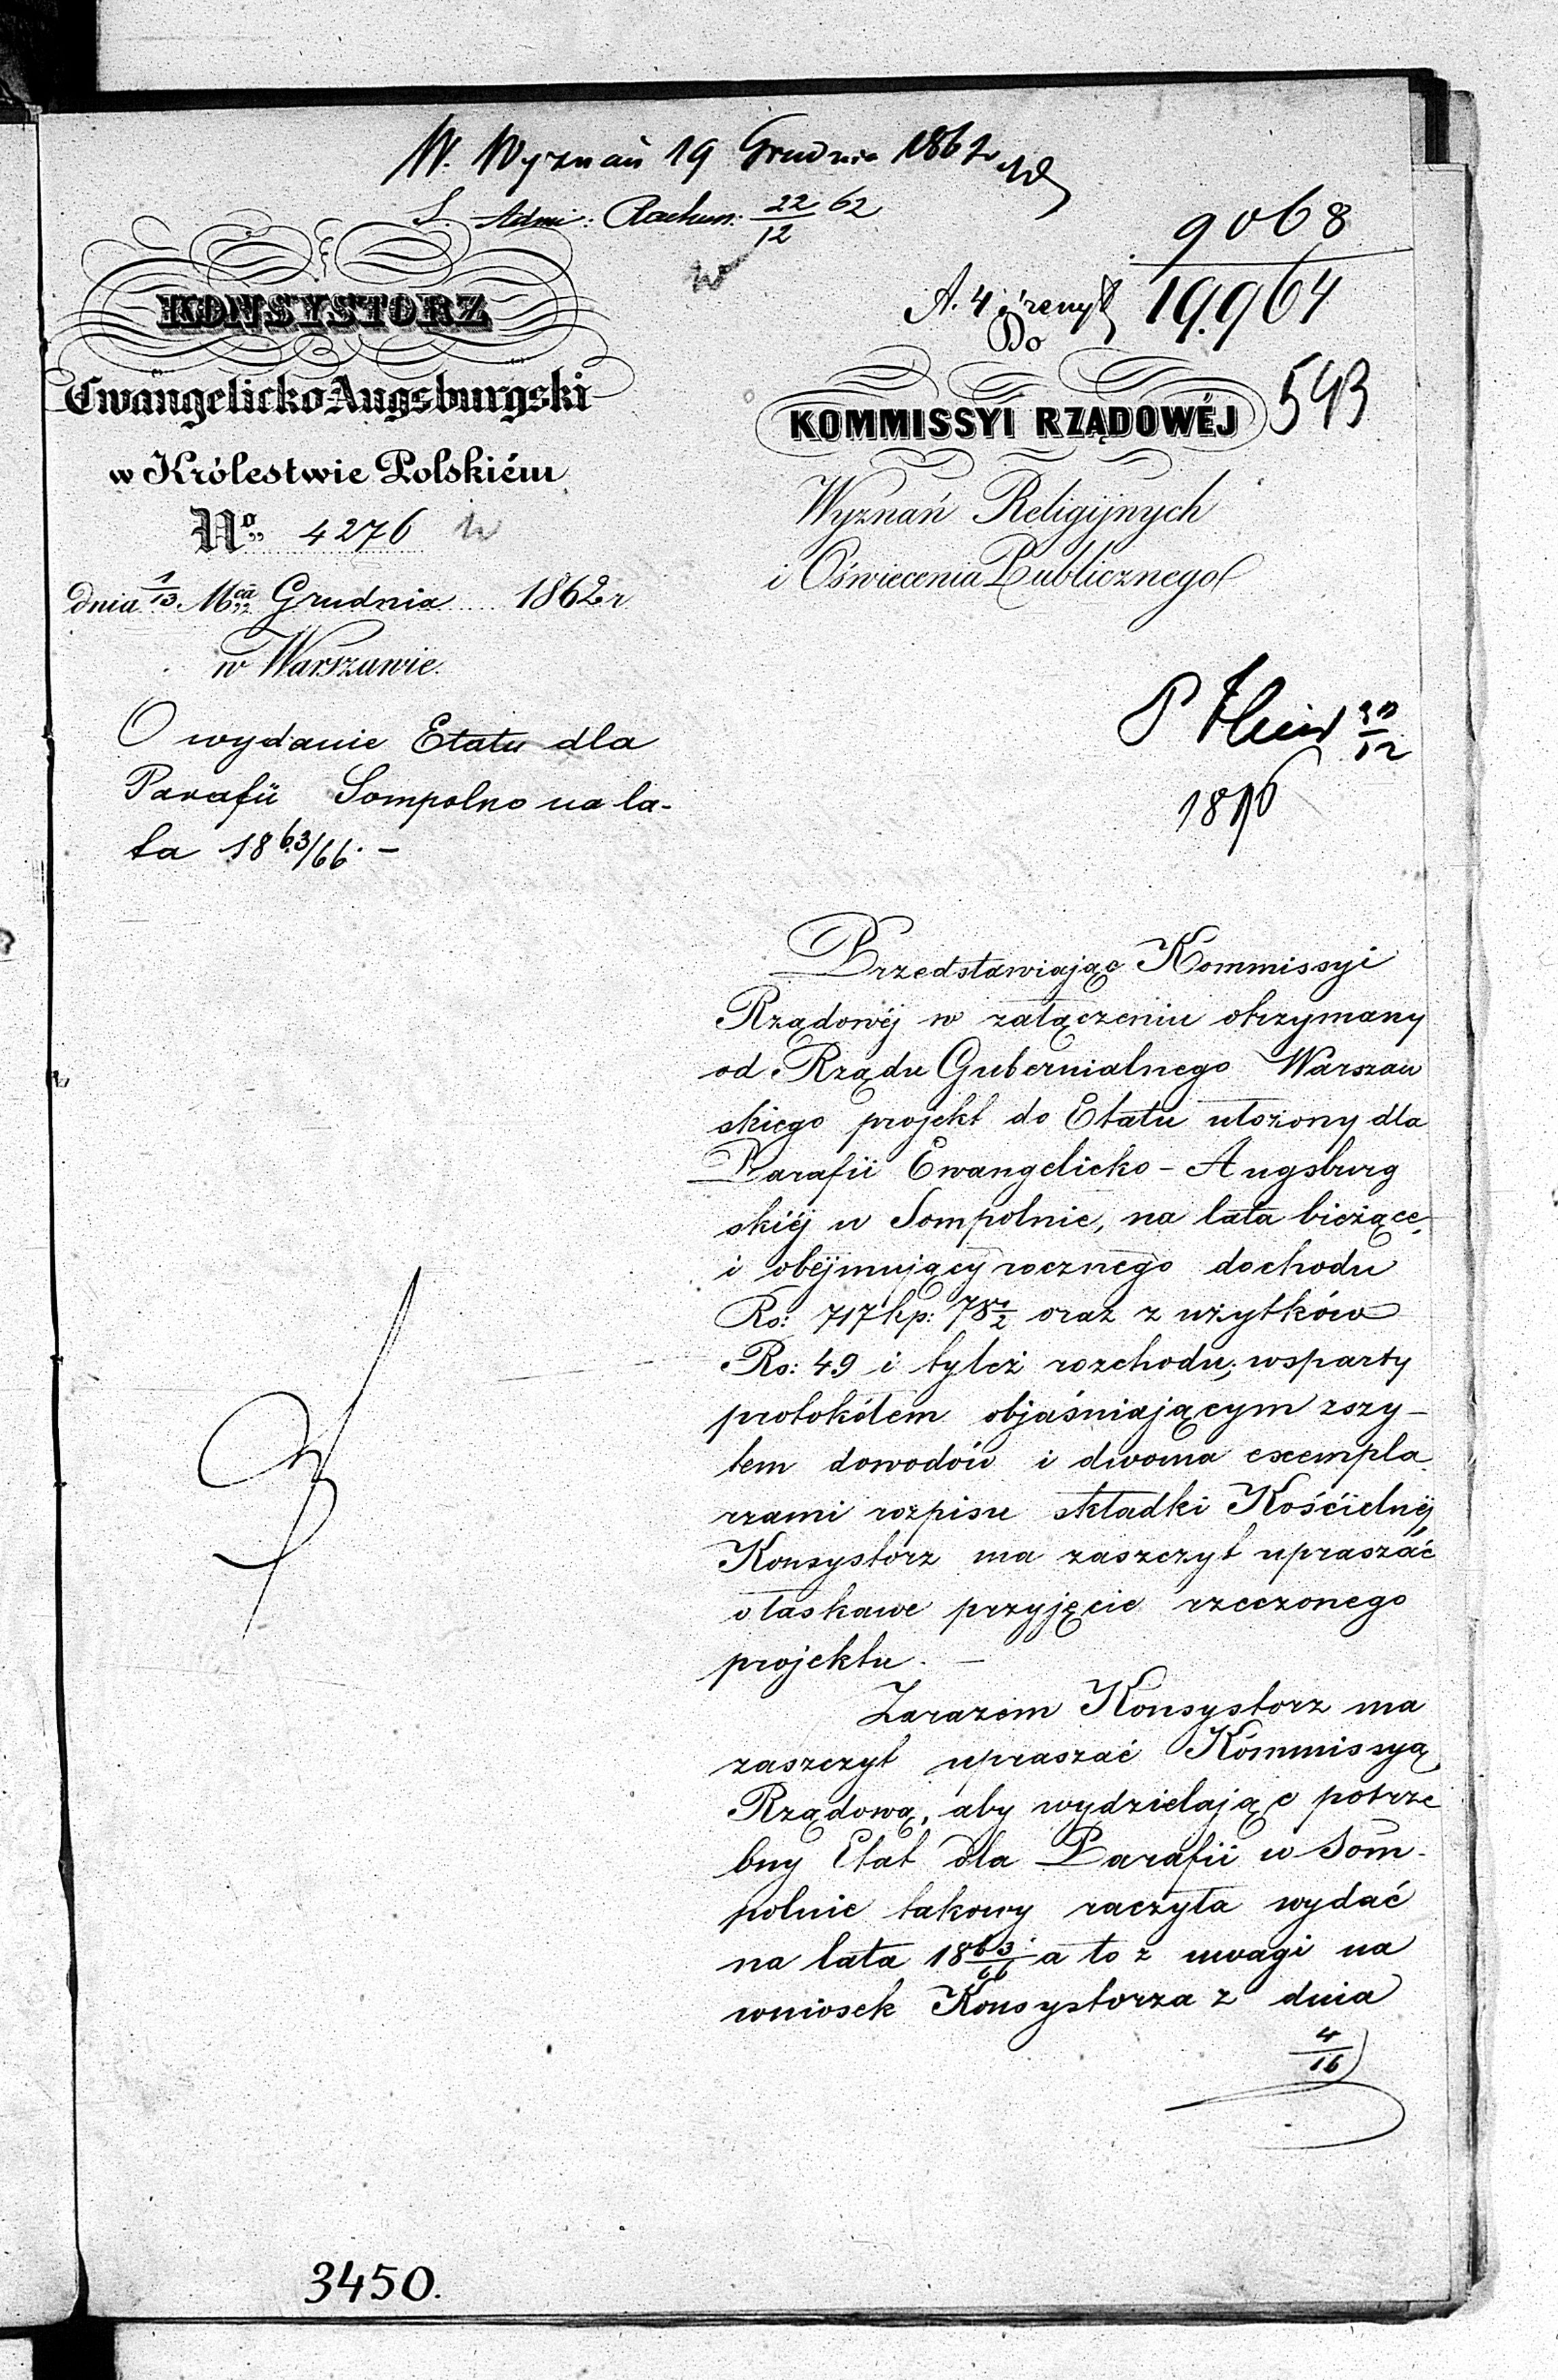 W. Wyznań 19 Grudnia 1862
S. Admi: Rachun: 22/12 62
9068
A. 4 19.964
Do
543
KONSYSTORZ
Ewangelicko-Augsburgski
w Królestwie Polskiém
No 4276
dnia 1/13 Mca Grudnia 1862 r
w Warszawie.
O wydanie Etatu dla
Parafii Sompolno na la-
ta 18 63/66. –
KOMMISSYI RZĄDOWÉJ
Wyznań Religijnych
i Oświecenia Publicznego
P 20/12
Przedstawiając Kommissyi
Rządowéj w załączeniu otrzymany
od Rządu Gubernialnego Warszaw
skiego projekt do Etatu ułożony dla
Parafii Ewangelicko-Augsburg
skiéj w Sompolnie, na lata bieżące,
i obéjmujący rocznego dochodu
Rs: 717 kp: 78 1/2 oraz z użytków
Rs: 49 i tyleż rozchodu, wsparty
protokółem objaśniającym zszy-
tem dowodów i dwoma exempla
rzami rozpisu składki Kościelnéj
Konsystorz ma zaszczyt upraszać
o łaskawe przyjęcie rzeczonego
projektu. –
Zarazem Konsystorz ma
zaszczyt upraszać Kommissyą
Rządową, aby wydzielając potrze
bny Etat dla Parafii w Som-
polnie takowy raczyła wydać
na lata 18 63/66 a to z uwagi na
wniosek Konsystorza z dnia
4/16
3450.